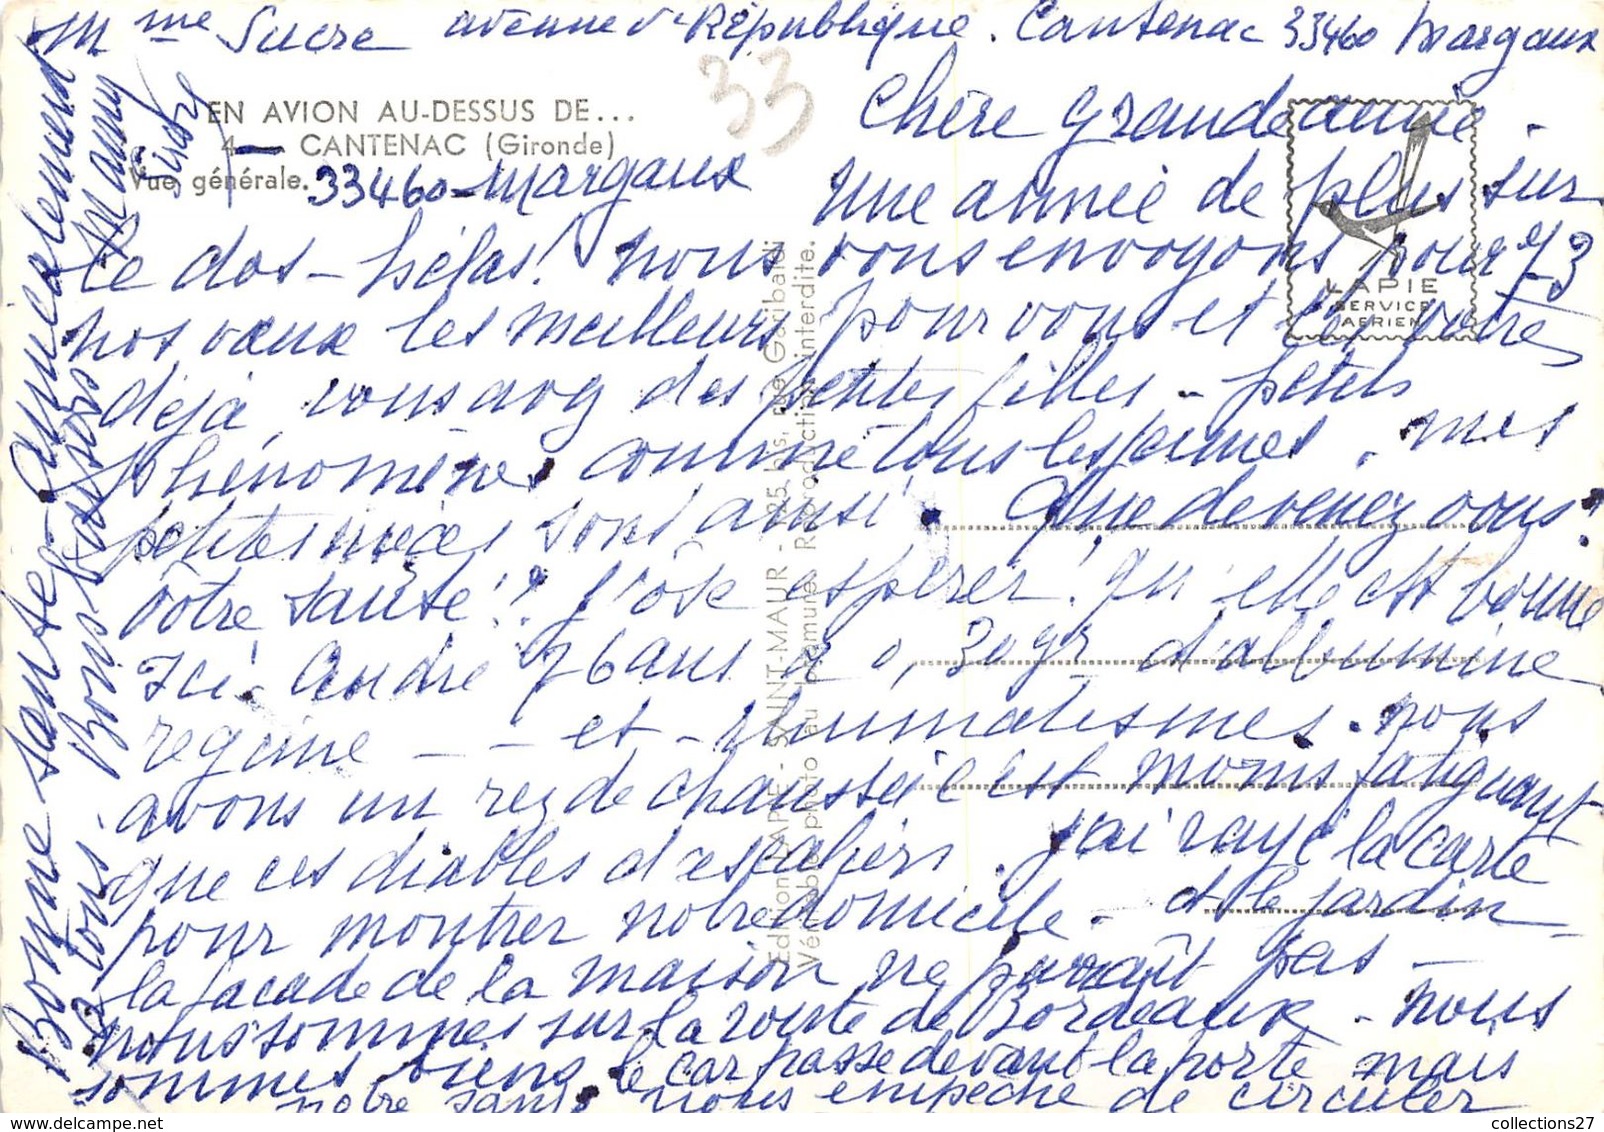 Mme Sucre avenue de République. Cantenac 33460 Margaux
EN AVION AU-DESSUS DE...
4 — CANTENAC (Gironde)
Vue générale. 33460 - Margaux
33
Chère grande amie.
Une année de plus sur
le dos - hélas! nous vous envoyons pour 73
nos vœux les meilleurs pour vous et les vôtres
déjà, vous avez des petites filles - petits
phénomènes comme tous les jeunes. mes
petites nièces sont ainsi. Que devenez vous?
vôtre santé!? J'ose espérer! qu'elle est bonne
Ici. André 76 ans a 0,30gr d'albumine
régime - - et - rhumatismes. nous
avons un rez de chaussée c'est moins fatiguant
que ces diables d'escaliers. J'ai rayé la carte
pour montrer notre domicile - et le jardin -
la façade de la maison ne paraît pas -
nous sommes sur la route de Bordeaux - nous
sommes biens, le car passe devant la porte mais
notre santé nous empêche de circuler
Bonne santé - Amicalement
à tous. Bons baisers
Manny
LAPIE
SERVICE
AERIEN
Editions LAPIE - SAINT-MAUR - 25 bis, rue Garibaldi
Véritable photo au bromure. Reproduction interdite.
collections27